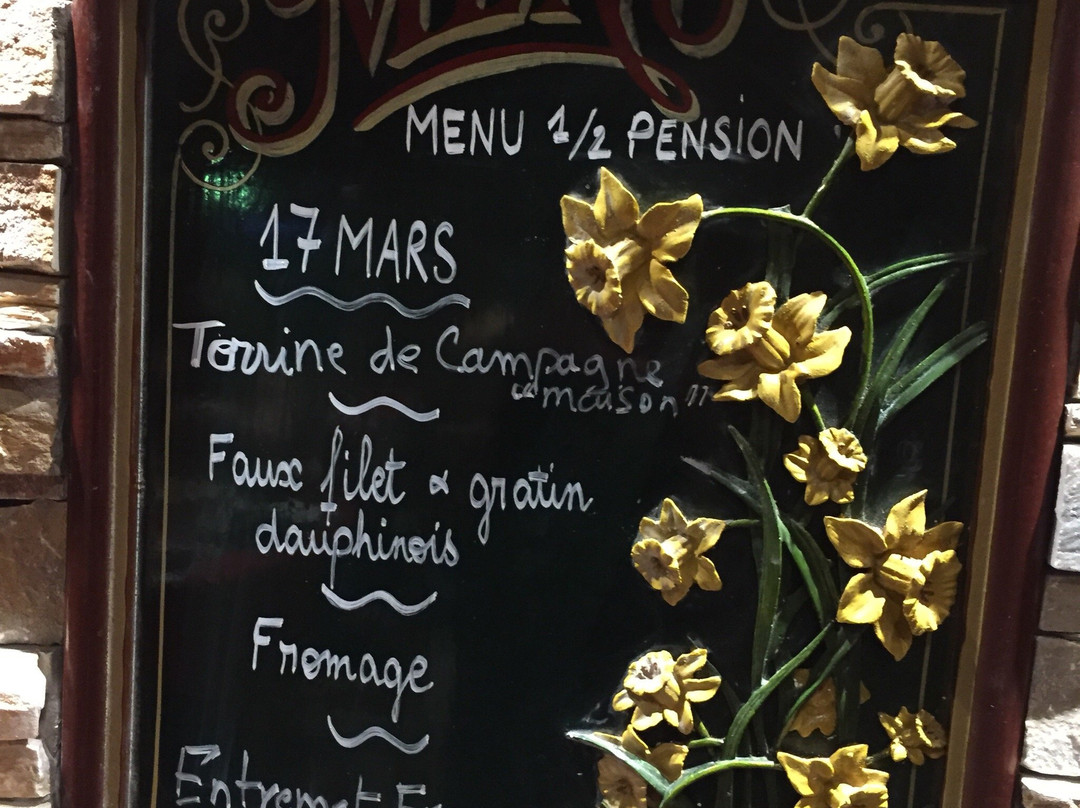 MENU
MENU 1/2 PENSION
17 MARS
Terrine de Campagne
"maison"
Faux filet & gratin
dauphinois
Fromage
Entremet